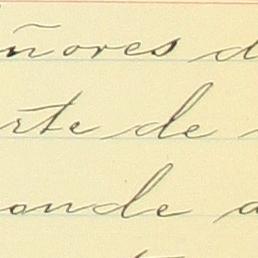 ñores d
rte de
onde a